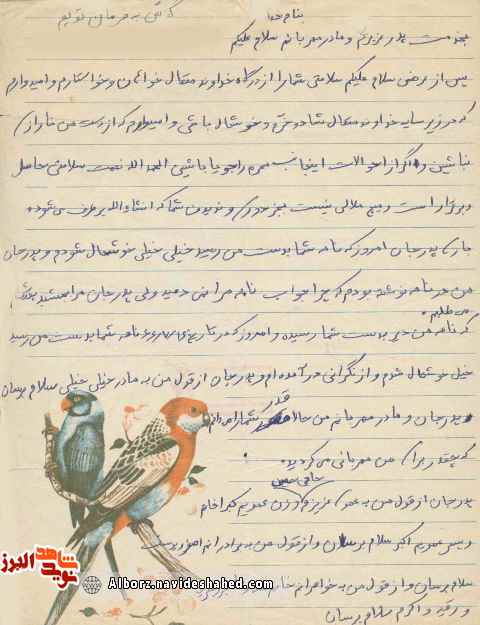 بنام خدا
بخدمت پدر عزیزم و مادر مهربانم سلام علیکم
پس از عرض سلام علیکم سلامتی شما را از درگاه خداوند متعال خواهان و خواستارم و امیدوارم
که در زیر سایه خداوند متعال شاد و خرم و خوشحال باشی و امیدوارم که از دست من ناراضی
نباشین و اگر از احوالات اینجانب را جویا باشین الحمد الله نعمت سلامتی حاصل
و برقرار است و هیچ ملالی نیست بجز دوری و ندیدن شما که انشاء الله برطرف می شود
باری پدر جان امروز که نامه شما بدست من رسید خیلی خیلی خوشحال شودم و پدر جان
من در نامه نوشته بودم که چرا جواب نامه مرا نمی دهید ولی پدر جان مرا ببخشید
می طلبم
که نامه من دیر بدست شما رسیده و امروز که در تاریخ نامه شما بدست من رسید
خیلی خوشحال شدم و از نگرانی در آمده ام و پدر جان از قول من به مادر خیلی خیلی سلام برسان
پدر جان و مادر مهربانم من حالا قدر شما را می دانم
که چقدر برای من مهربانی می کردید
پدر جان از قول من به عموی عزیزم و زن عمویم کبرا خانم
و پسر عمویم اکبر سلام برسان و از قول من به برادرانم
سلام برسان و از قول من به خواهرانم
و رقیه و اکرم سلام برسان
شاهد
نوید
البرز
Alborz.navideshahed.com